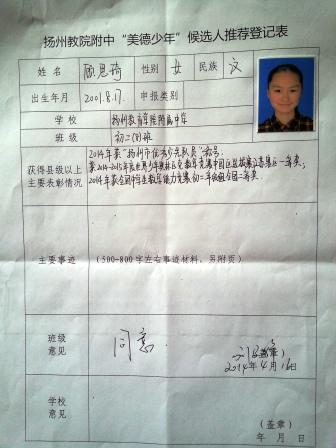 扬州教院附中“美德少年”候选人推荐登记表
姓名 顾思琦 性别 女 民族 汉
出生年月 2001.8.17. 申报类别
学校 扬州教育学院附属中学
班级 初二(8)班
获得县级以上
主要表彰情况
2014年获“扬州市优秀少先队员”称号,
2014年获全国中学生数学能力竞赛初二年级组全国二等奖
主要事迹 (500-800字左右事迹材料,另附页)
班级
意见
同意
(盖章)
2014年4月16日
学校
意见
(盖章)
年 月 日